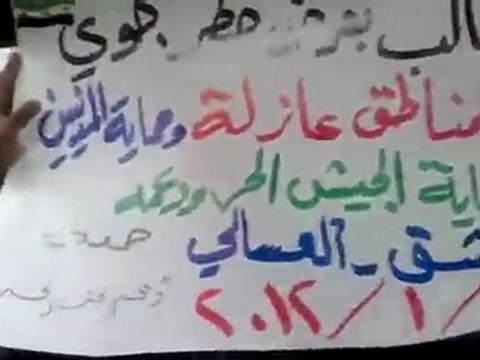 طالب بفرض حظر جوي
مناطق عازلة وحماية المدنيين
اية الجيش الحر ودعمه
شق - العسالي
/ ١ / ٢٠١٢